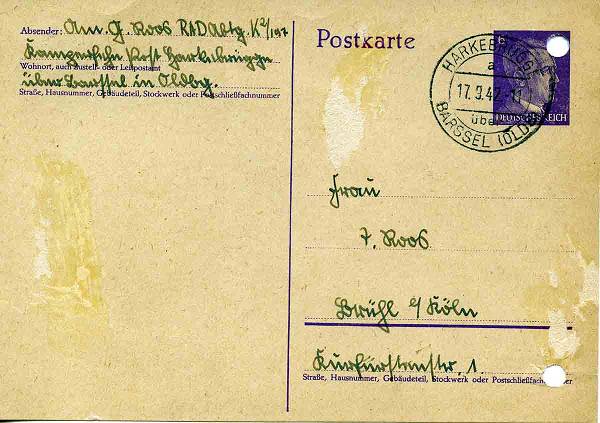 Absender: Am. G. Roos RAD Abtg. K2/197
Kampersfehn Post Harkebrügge
Wohnort, auch Zustell- oder Leitpostamt
über Barssel in Oldbg.
Straße, Hausnummer, Gebäudeteil, Stockwerk oder Postschließfachnummer
Postkarte
HARKEBRÜGGE
a
17.9.42.-11
über
BARSSEL (OLDB)
6
DEUTSCHES REICH
Frau
J. Roos
Brühl b/Köln
Kurfürstenstr. 1.
Straße, Hausnummer, Gebäudeteil, Stockwerk oder Postschließfachnummer